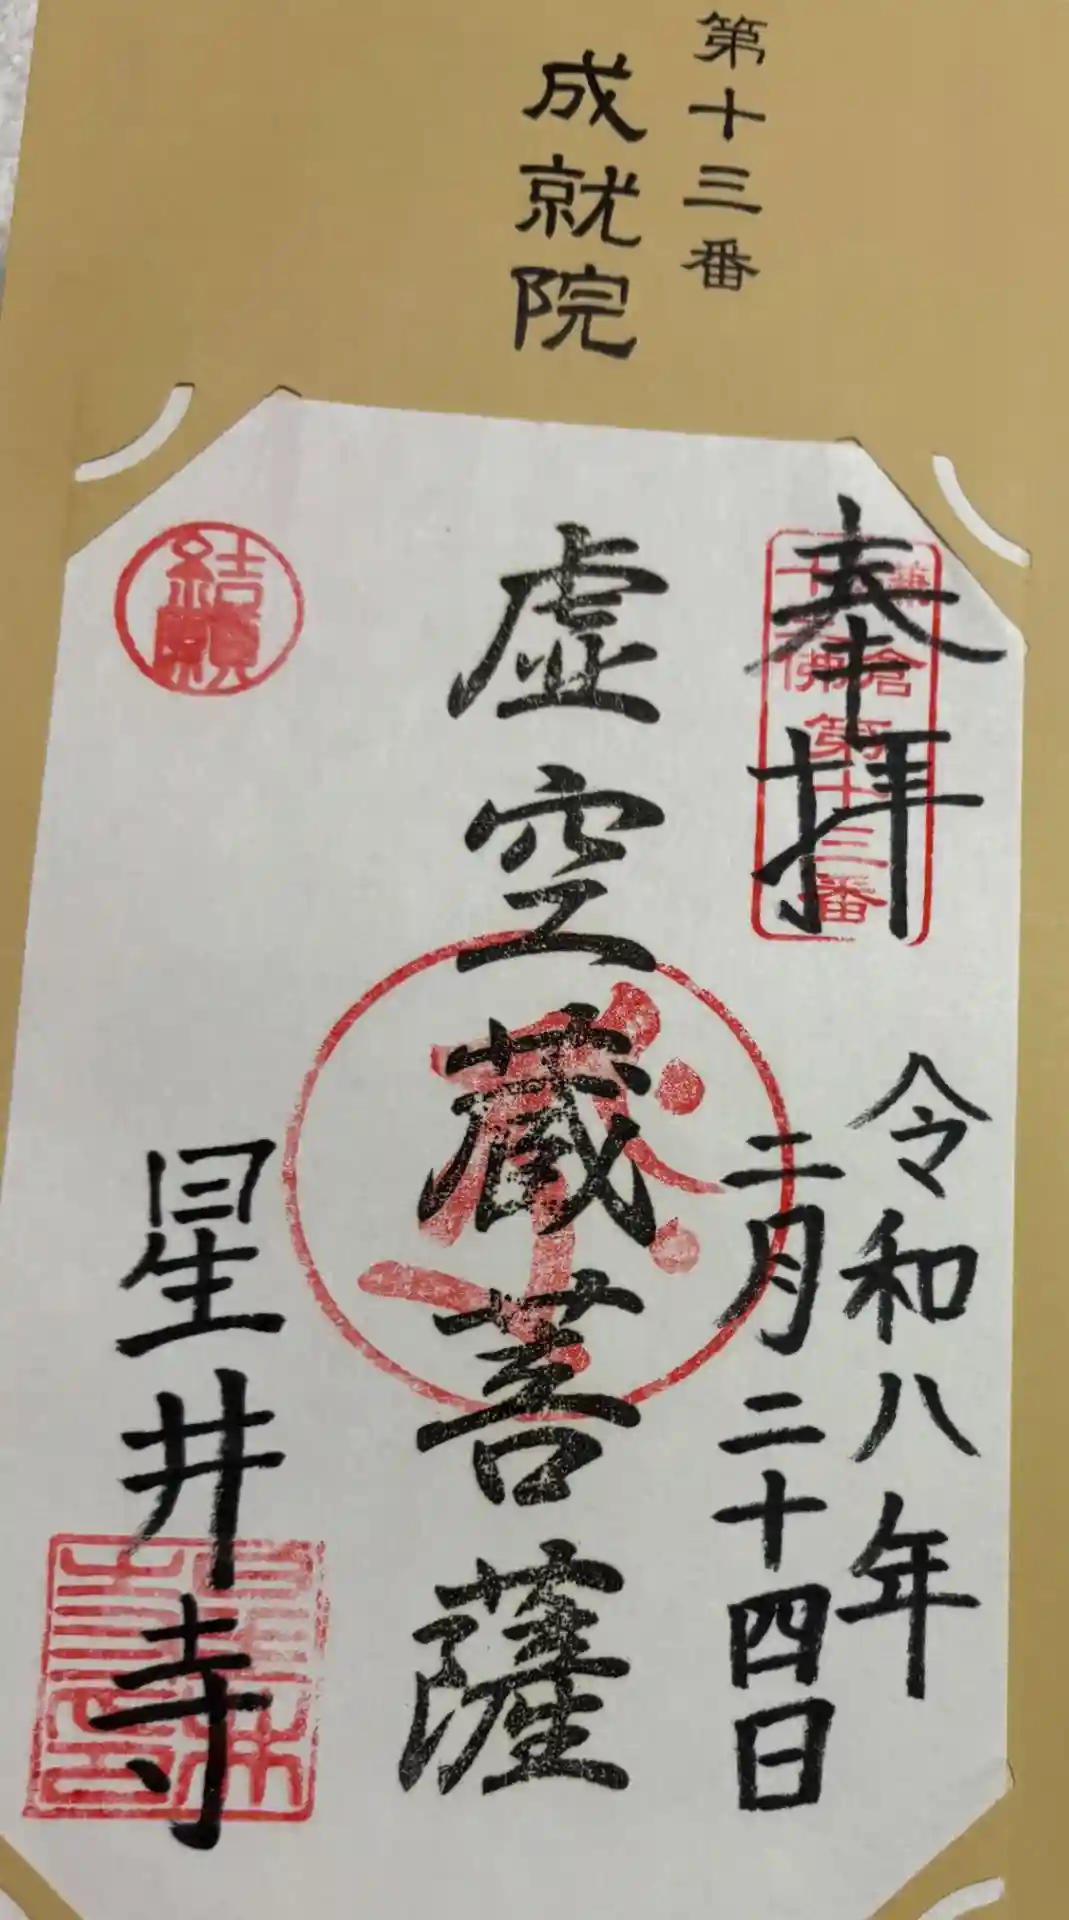 第十三番
成就院
奉拝
令和八年
二月二十四日
虚空蔵菩薩
星井寺
結願
第十三番